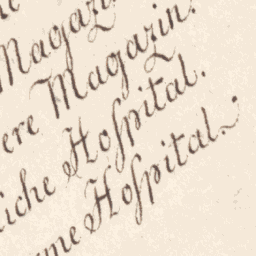 Magazin
ere Magazin.
liche Hoſpital.
me Hoſpital.